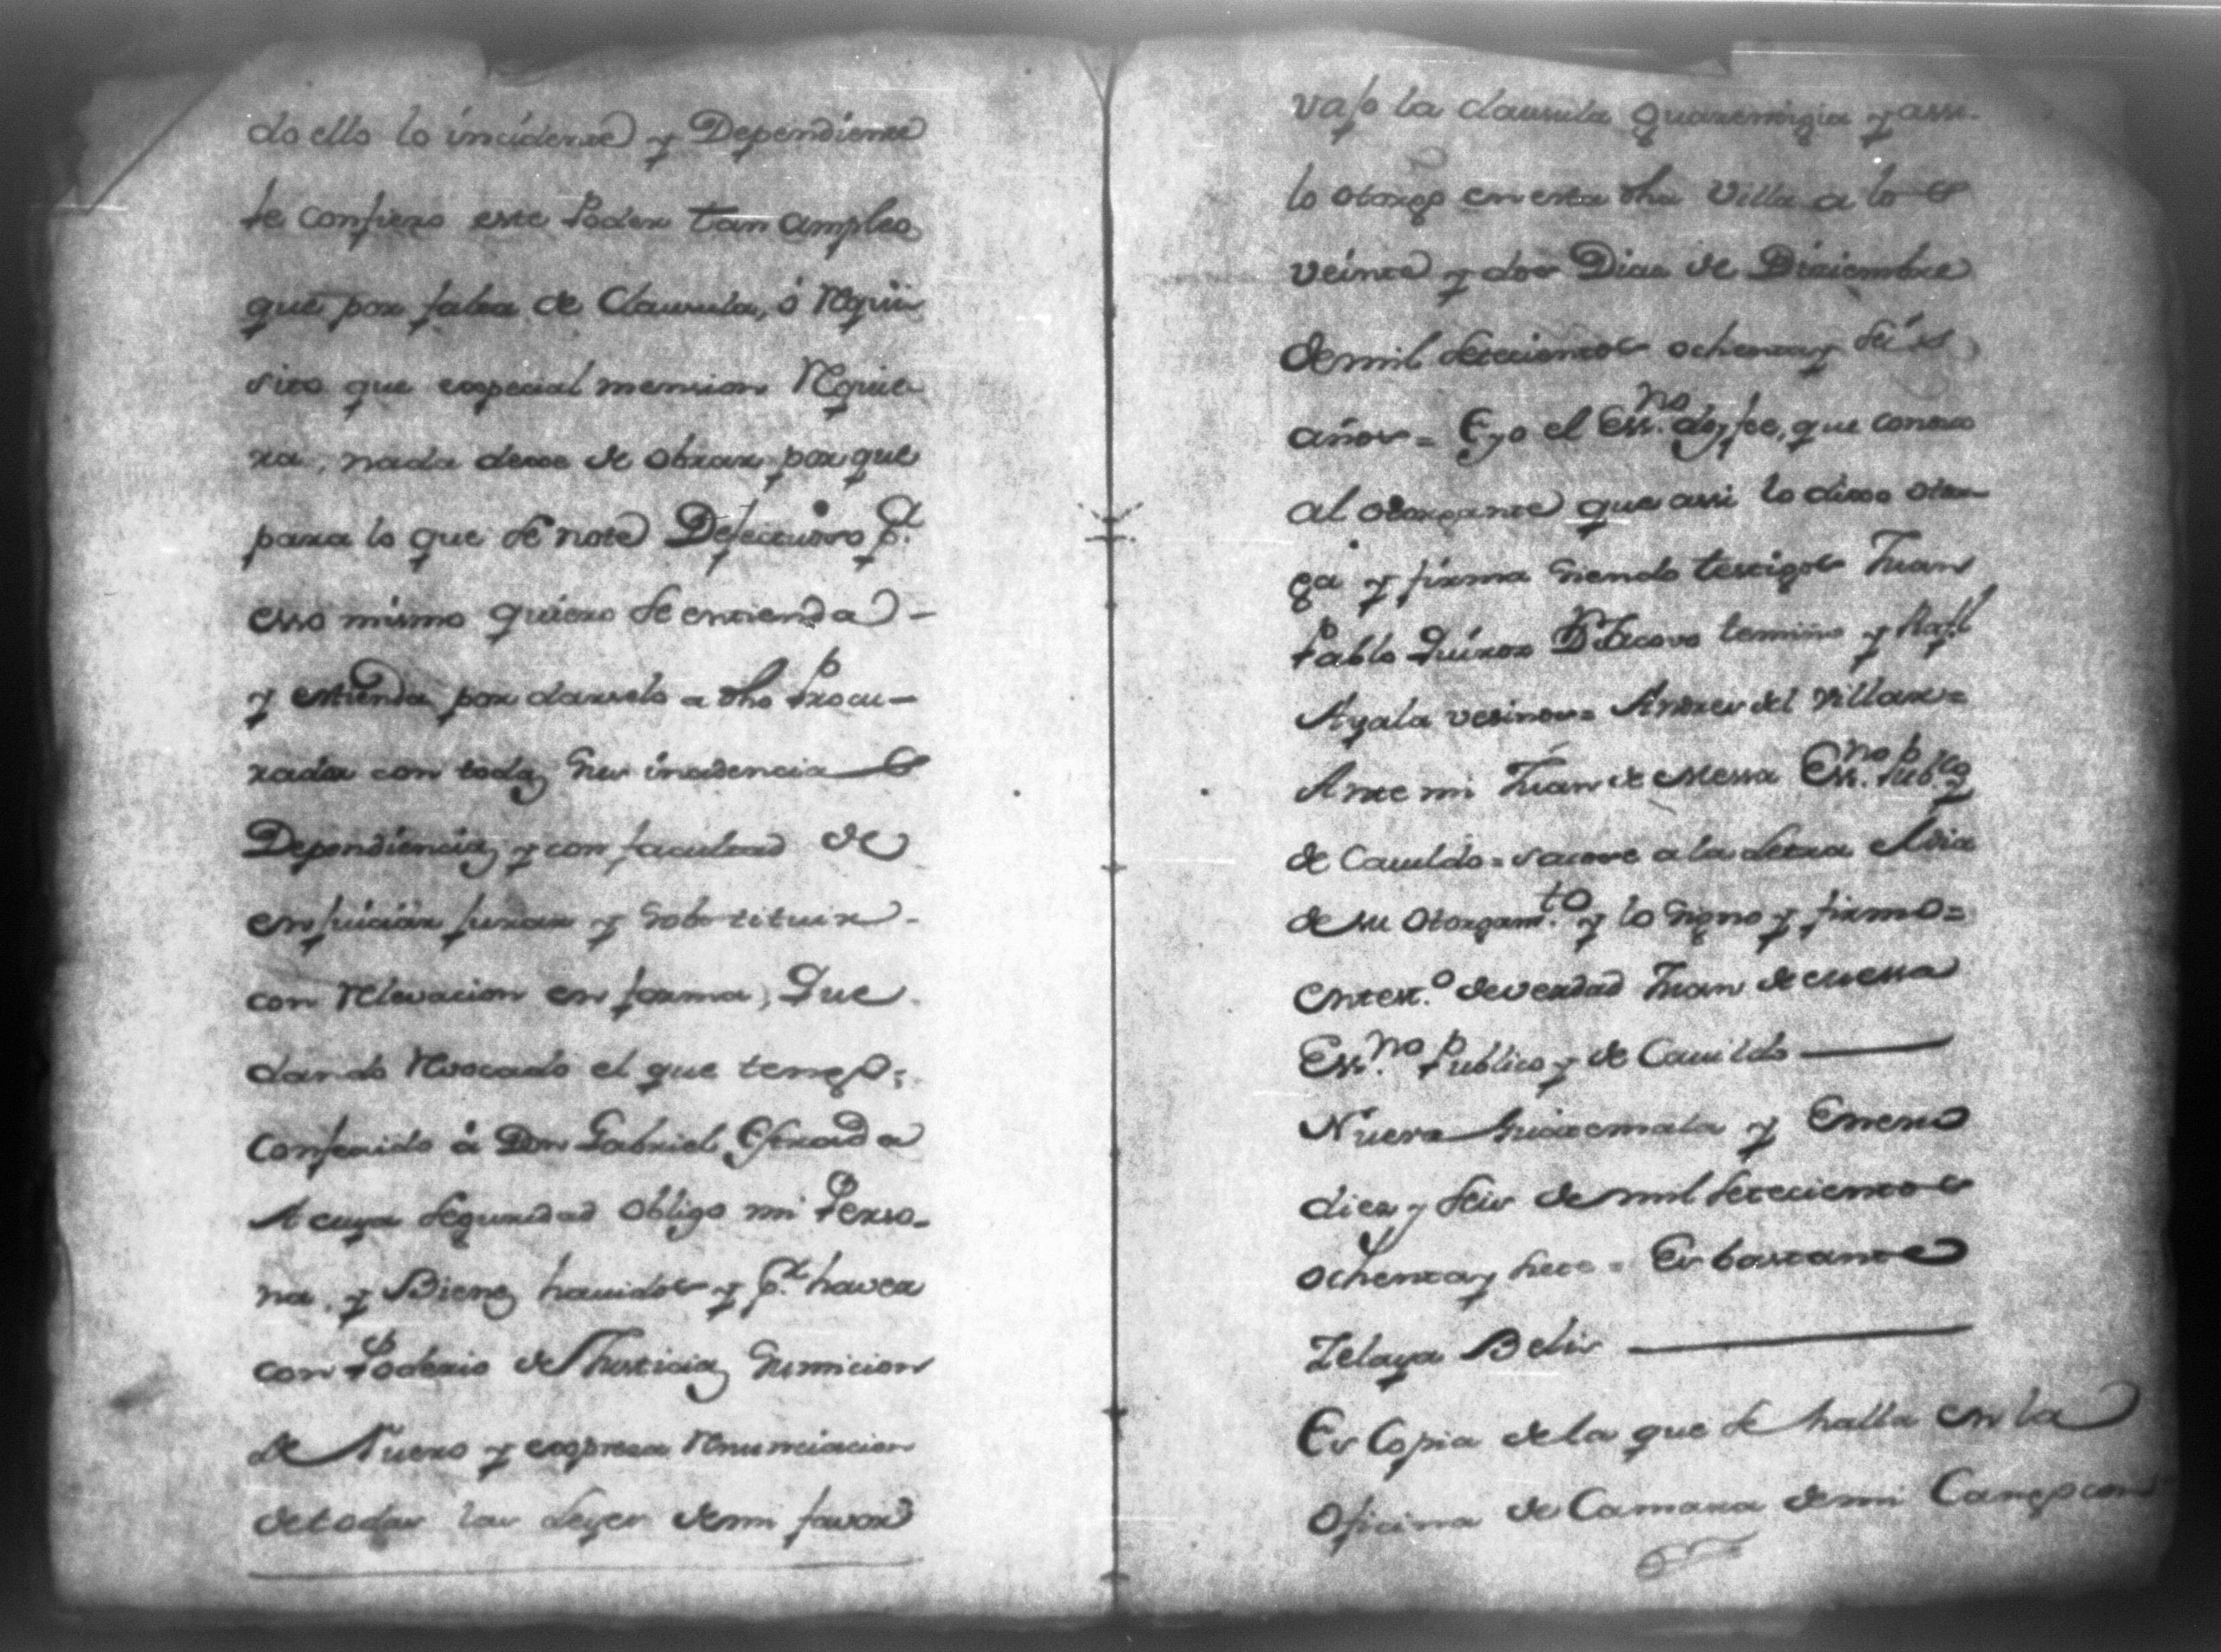 do ello lo incidente y Dependiente
le confiero este Poder tan amplio
que por falta de Clausula, ó Requi
sito que expecial mension Requie
ra, nada dexe de obrar porque
para lo que se note Defectuoso p.r
esso mismo quiero se entienda -
y estienda por darselo a dho Procu-
rador con todas sus incidencias
Dependiencias y con facultad de
enjuiciar jurar y sobstituir -
con Relevacion en forma, Que
dando Revocado el que tengo
Conferido á Don Gabriel
A cuya seguridad obligo mi Perso-
na, y Bienes havidos y p.r haver
con Poderio de Jhusticias sumicion
de Fuero y expresa Renunciacion
de todas las Leyes de mi favor
vajo la clausula Guarentigia y assi
lo otorgo en esta dha Villa a los
veinte y dos Dias de Diziembre
de mil setecientos ochenta y seis
años = E yo el Ess.no doy fee, que conosco
al otorgante que assi lo dixo otor
ga y firma siendo testigos Juan
Pablo Quiros D. Temiño y Rafl
Ayala vesinos = Andres del Villar =
Ante mi Juan de Messa Ess.no Pub.co y
de Cauildo = sacose a la Letra el dia
de su otorgam.to y lo signo y firmo =
En test.o de verdad Juan de Messa
Ess.no Publico y de Cauildo
Nueva Guatemala y Enero
diez y seis de mil setecientos
ochenta y siete = Es bastante
Zelaya Belis
Es Copia de la que se halla en la
Oficina de Camara de mi Cargo con